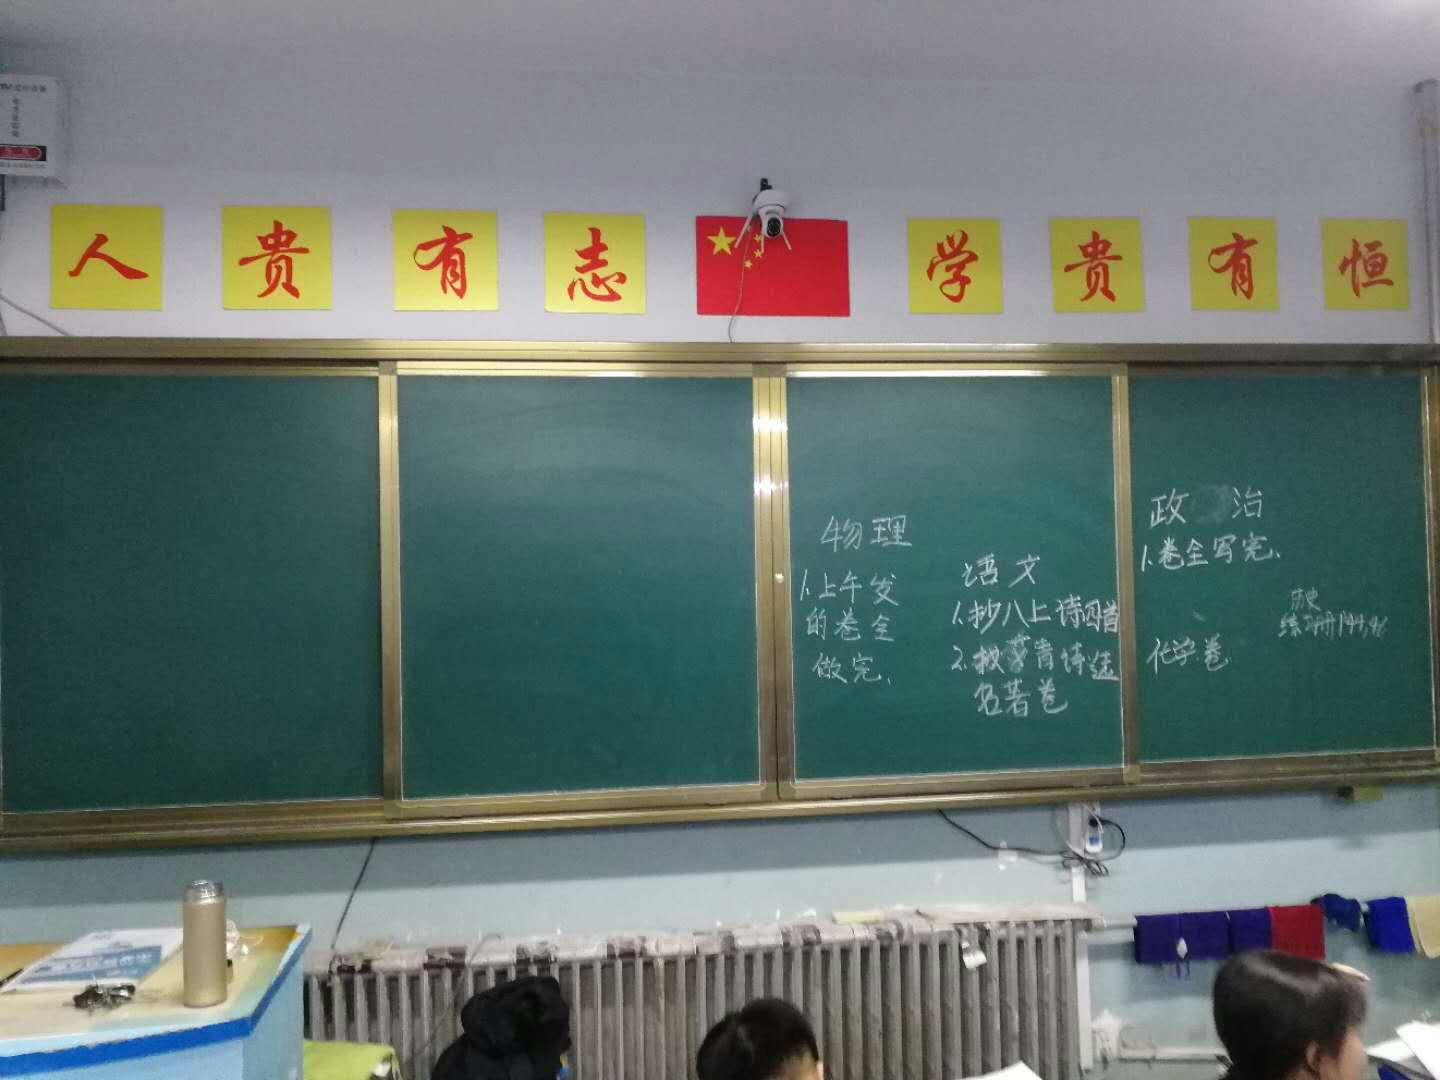 人贵有志
学贵有恒
物理
1.上午发
的卷全
做完.
语文
1.抄八上诗四首
2.艾青诗选
名著卷
政治
1.卷全写完.
化学卷
历史
练习册